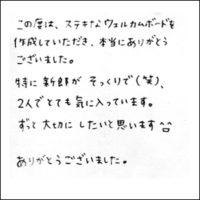 この度は、ステキなウェルカムボードを
作成していただき、本当にありがとう
ございました。
特に新郎がそっくりで(笑)、
2人でとても気に入っています。
ずっと大切にしたいと思います^^
ありがとうございました。